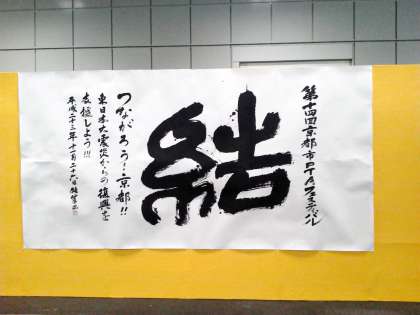 第十四回京都市PTAフェスティバル
結
つながろう!京都!!
東日本大震災からの復興を
支援しよう!!!
平成二十三年十一月二十六日